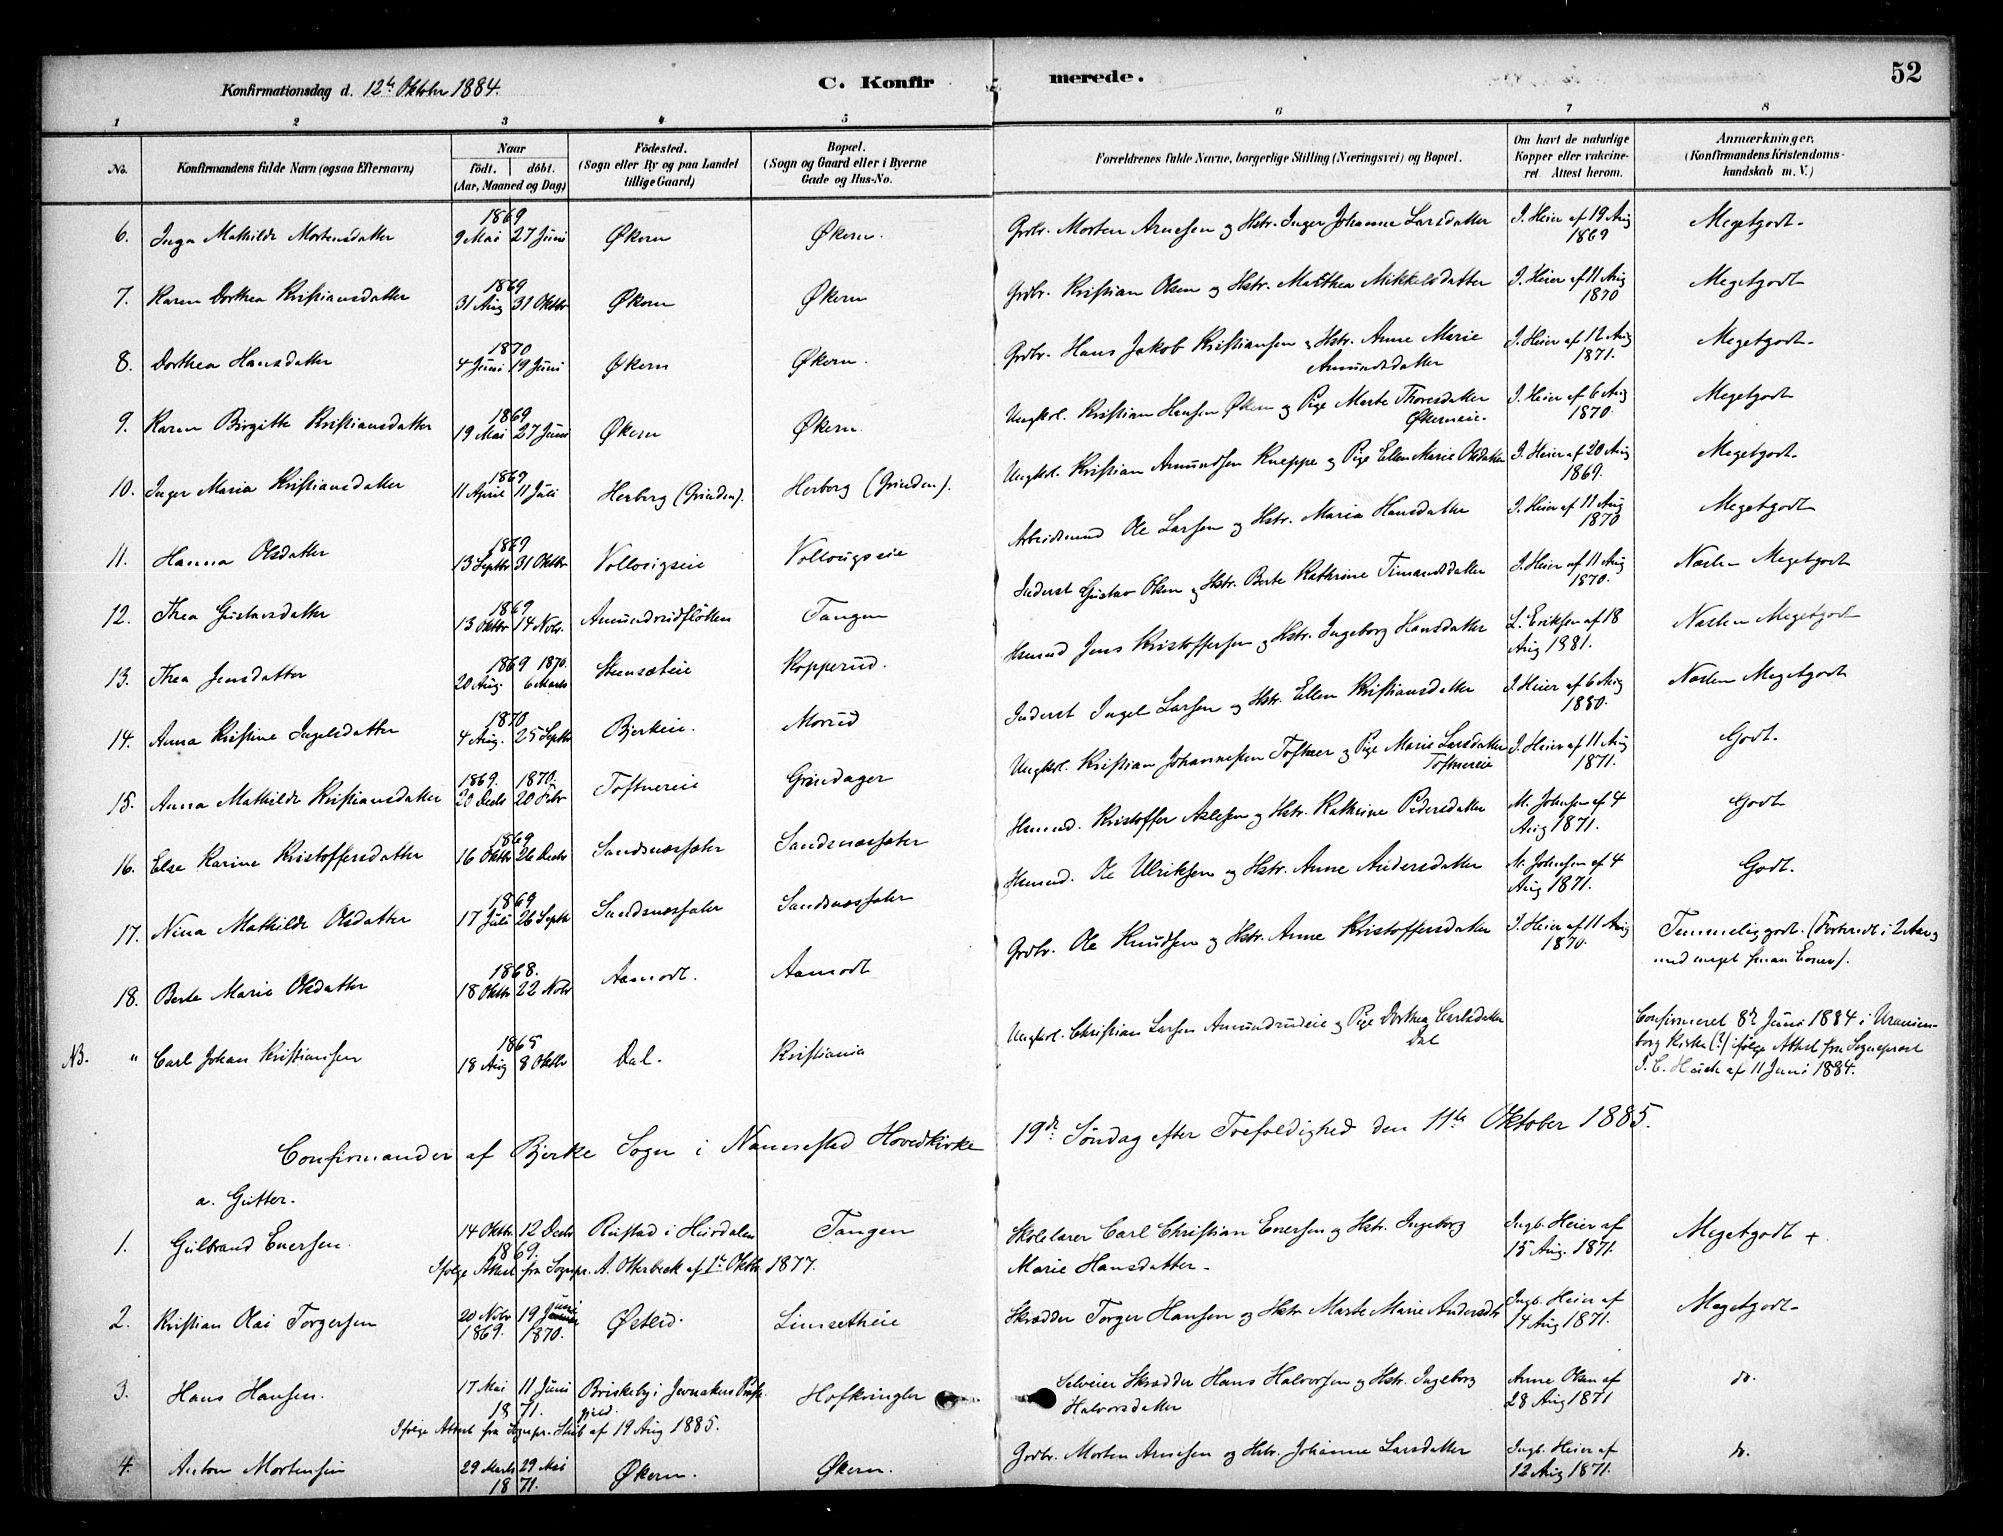 Konfirmationsdag d. 12te Oktober 1884.
C. Konfirmerede.
52
1 2 3 4 5 6 7 8
No. Konfirmandens fulde Navn (ogsaa Efternavn) Naar födt. döbt. (Aar, Maaned og Dag) Födested. (Sogn eller By og paa Landet tillige Gaard) Bopæl. (Sogn og Gaard eller i Byerne Gade og Hus-No. Forældrenes fulde Navne, borgerlige Stilling (Næringsvei) og Bopæl. Om havt de naturlige Kopper eller vakcineret. Attest herom. Anmærkninger, (Konfirmandens Kristendomskundskab m. V.)
6. Inga Mathilde Mortensdatter 1869 9 Mai 27 Juni Økern Økern. Grdbr. Morten Arnesen og Hstr. Inger Johanne Larsdatter I. Heier af 19 Aug 1869 Megetgodt.
7. Karen Dorthea Kristiansdatter 1869 31 Aug 31 Oktbr Økern Økern Grdbr. Kristian Olsen og Hstr. Mathea Mikkelsdatter I. Heier af 11 Aug 1870 Megetgodt
8. Dorthea Hansdatter 1870 4 Juni 19 Juni Økern Økern. Grdbr. Hans Jakob Kristiansen og Hstr. Anne Marie Amundsdatter I. Heier af 12 Aug 1871. Megetgodt.
9. Karen Birgitte Kristiansdatter 1869 19 Mai 27 Juni Økern Økern. Ungkrl. Kristian Hansen Økern og Pige Marte Thoresdatter Økerneie. I. Heier af 6 Aug 1870. Megetgodt
10. Inger Maria Kristiansdatter 1869 11 April 11 Juli Herberg (Grinden). Herberg (Grinden). Ungkrl. Kristian Amundsen Kneppe og Pige Ellen Marie Olsdatter I. Heier af 20 Aug 1869. Megetgodt.
11. Hanna Olsdatter 1869 13 Septbr 31 Oktbr Vollaugseie Vollaugseie Arbeidsmand Ole Larsen og Hstr. Maria Hansdatter I. Heier af 11 Aug 1870 Megetgodt
12. Thea Gustavsdatter 1869 13 Oktbr 14 Nobr. Amundrudfløtten Tangen Inderst Gustav Olsen og Hstr. Berte Kathrine Timandsdatter I. Heier af 11 Aug 1870. Næsten Megetgodt
13. Thea Jensdatter 1869 1870. 20 Aug. 6 Marts Steensæteie Kopperud. Hsmnd Jens Kristoffersen og Hstr. Ingeborg Hansdatter L. Eriksen af 18 Aug 1881. Næsten Megetgodt
14. Anna Kristine Ingelsdatter 1870 4 Aug. 25 Septbr Bjerkeie. Morud Inderst Ingel Larsen og Hstr. Ellen Kristiansdatter I. Heier af 6 Aug 1880. Næsten Megetgodt
15. Anna Mathilde Kristiansdatter 1869. 1870. 20 Decbr 20 Febr Toftnereie Grindager Ungkrl. Kristian Johannessen Toftner og Pige Marie Larsdatter Toftnereie I. Heier af 11 Aug 1871. Godt.
16. Else Karine Kristoffersdatter 1869 16 Oktbr 26 Decbr Sandsnæssæter Sandsnæssæter Hsmnd. Kristoffer Aslesen og Hstr. Kathrine Pedersdatter M. Johnsen af 4 Aug 1871. Godt
17. Nina Mathilde Olsdatter 1869 17 Juli 26 Septbr Sandsnæssæter Sandsnæssæter Hsmnd. Ole Ulriksen og Hstr. Anne Andersdatter M. Johnsen af 4 Aug 1871. Godt.
18. Berte Marie Olsdatter 1868. 18 Oktbr 22 Nobr Aamodt. Aamodt Grdbr. Ole Knudsen og Hstr. Anne Kristoffersdatter I. Heier af 11 Aug 1870. Temmelig godt. (Forberedt i 2 Aar og med meget smaa Evner).
NB. " Carl Johan Kristiansen 1865 18 Aug 8 Oktbr Dal. Kristiania Ungkrl. Christian Larsen Amundrudeie og Pige Dorthea Carlsdatter Dal Confirmeret 8de Juni 1884 i Uranienborg Kirke (?) ifølge Attest fra Sognepræst J. C. Heuch af 11 Juni 1884.
Confirmander af Bjerke Sogn i Nannestad Hovedkirke 19de Søndag efter Trefoldighed den 11te Oktober 1885.
a. Gutter.
1. Gulbrand Enersen. 14 Oktbr. 12 Decbr 1869. Rustad i Hurdalen Tangen Skolelærer Carl Christian Enersen og Hstr. Ingeborg Marie Hansdatter. Ingb. Heier af 15 Aug. 1871. Megetgodt +
Ifølge Attest fra Sognepr. A. Otterbeck af 1te Oktbr. 1877.
2. Kristian Olai Torgersen 20 Nobr 1869. 19 Juni 1870. Østlid. Limsetheie Skrædder Torger Hansen og Hstr Marte Marie Andersdtr Ingb. Heier af 14 Aug 1871. Megetgodt.
3. Hans Hansen. 17 Mai 11 Juni 1871. Briskeby i Jevnakers Præstegjeld. Hofkvinglen Selveier Skrædder Hans Halvorsen og Hstr. Ingeborg Halvorsdatter Anne Olsen af 28 Aug 1871 do.
Ifølge Attest fra Sognepr. af 19 Aug 1885.
4. Anton Mortensen 29 Marts 29 Mai 1871. Økern. Økern. Grdbr. Morten Arnesen og Hstr. Johanne Larsdatter Ingb. Heier af 12 Aug 1871. do.